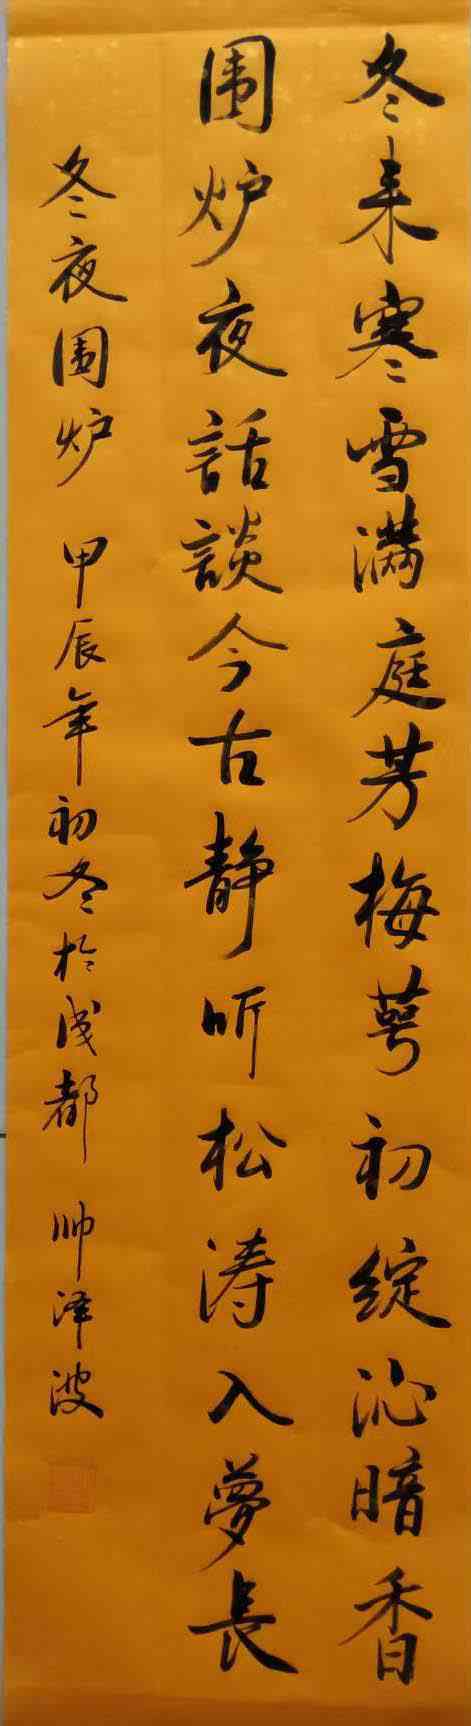 冬来寒雪满庭芳梅萼初绽沁暗香
围炉夜話談今古静听松涛入夢長
冬夜围炉 甲辰年初冬於成都 帅泽波